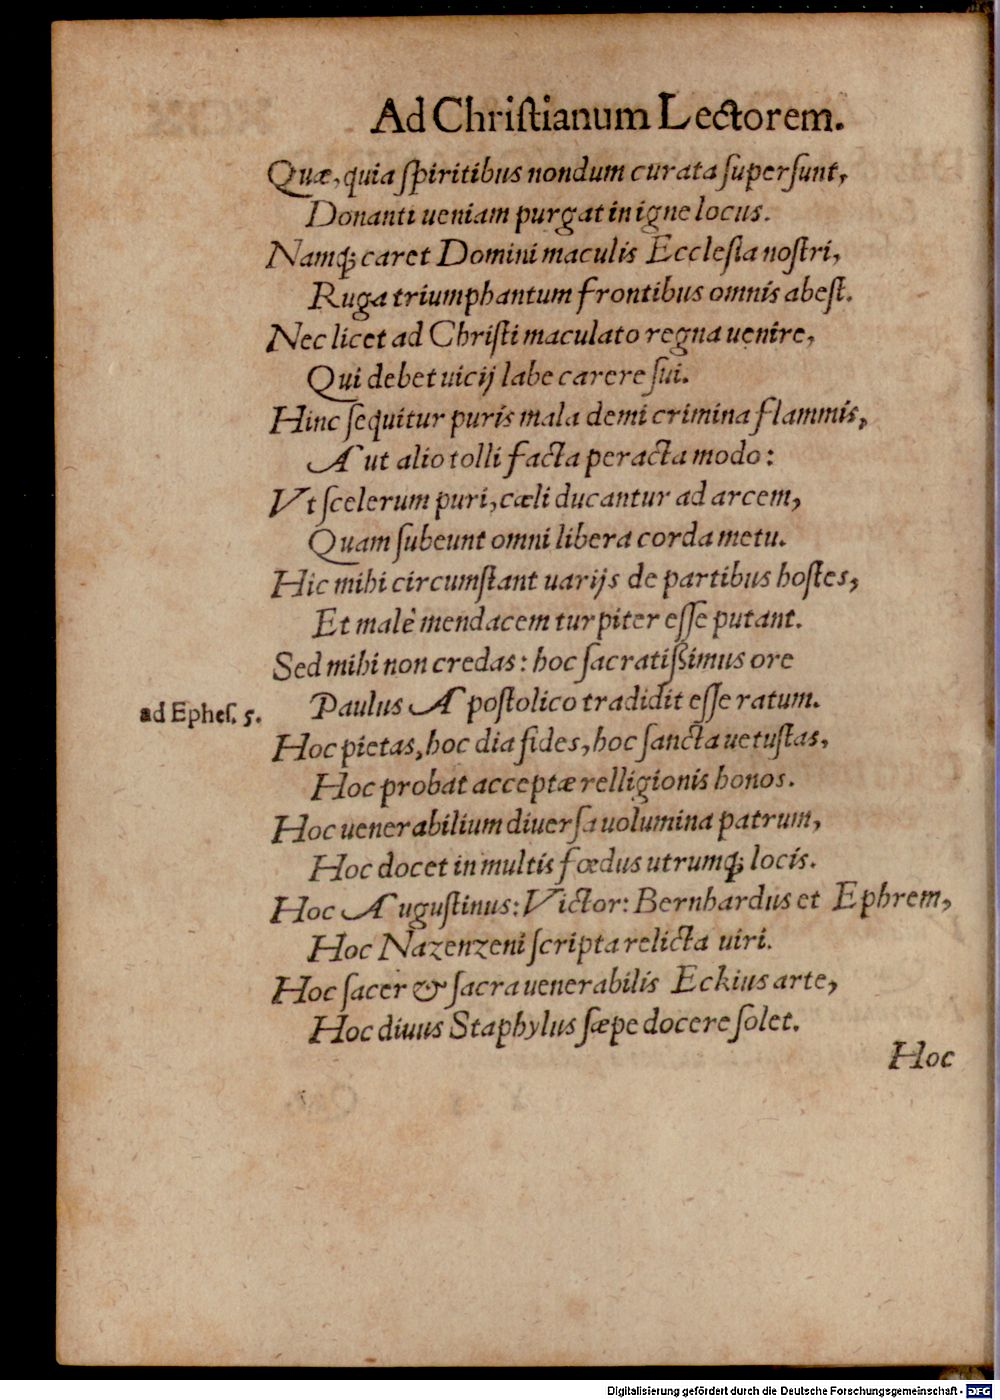 Ad Chriſtianum Lectorem.
Quæ, quia ſpiritibus nondum curata ſuperſunt,
Donanti ueniam purgat in igne locus.
Namq; caret Domini maculis Eccleſia noſtri,
Ruga triumphantum frontibus omnis abeſt.
Nec licet ad Chriſti maculato regna uenire,
Qui debet uicij labe carere ſui.
Hinc ſequitur puris mala demi crimina flammis,
Aut alio tolli facta peracta modo:
Vt ſcelerum puri, cæli ducantur ad arcem,
Quam ſubeunt omni libera corda metu.
Hic mihi circumſtant uarijs de partibus hoſtes,
Et malè mendacem turpiter eſſe putant.
Sed mihi non credas: hoc ſacratißimus ore
Paulus Apoſtolico tradidit eſſe ratum.
ad Epheſ. 5.
Hoc pietas, hoc dia fides, hoc ſancta uetuſtas,
Hoc probat acceptæ relligionis honos.
Hoc uenerabilium diuerſa uolumina patrum,
Hoc docet in multis fœdus utrumq; locis.
Hoc Auguſtinus: Victor: Bernhardus et Ephrem,
Hoc Nazenzeni ſcripta relicta uiri.
Hoc ſacer & ſacra uenerabilis Eckius arte,
Hoc diuus Staphylus ſæpe docere ſolet.
Hoc
Digitalisierung gefördert durch die Deutsche Forschungsgemeinschaft - DFG